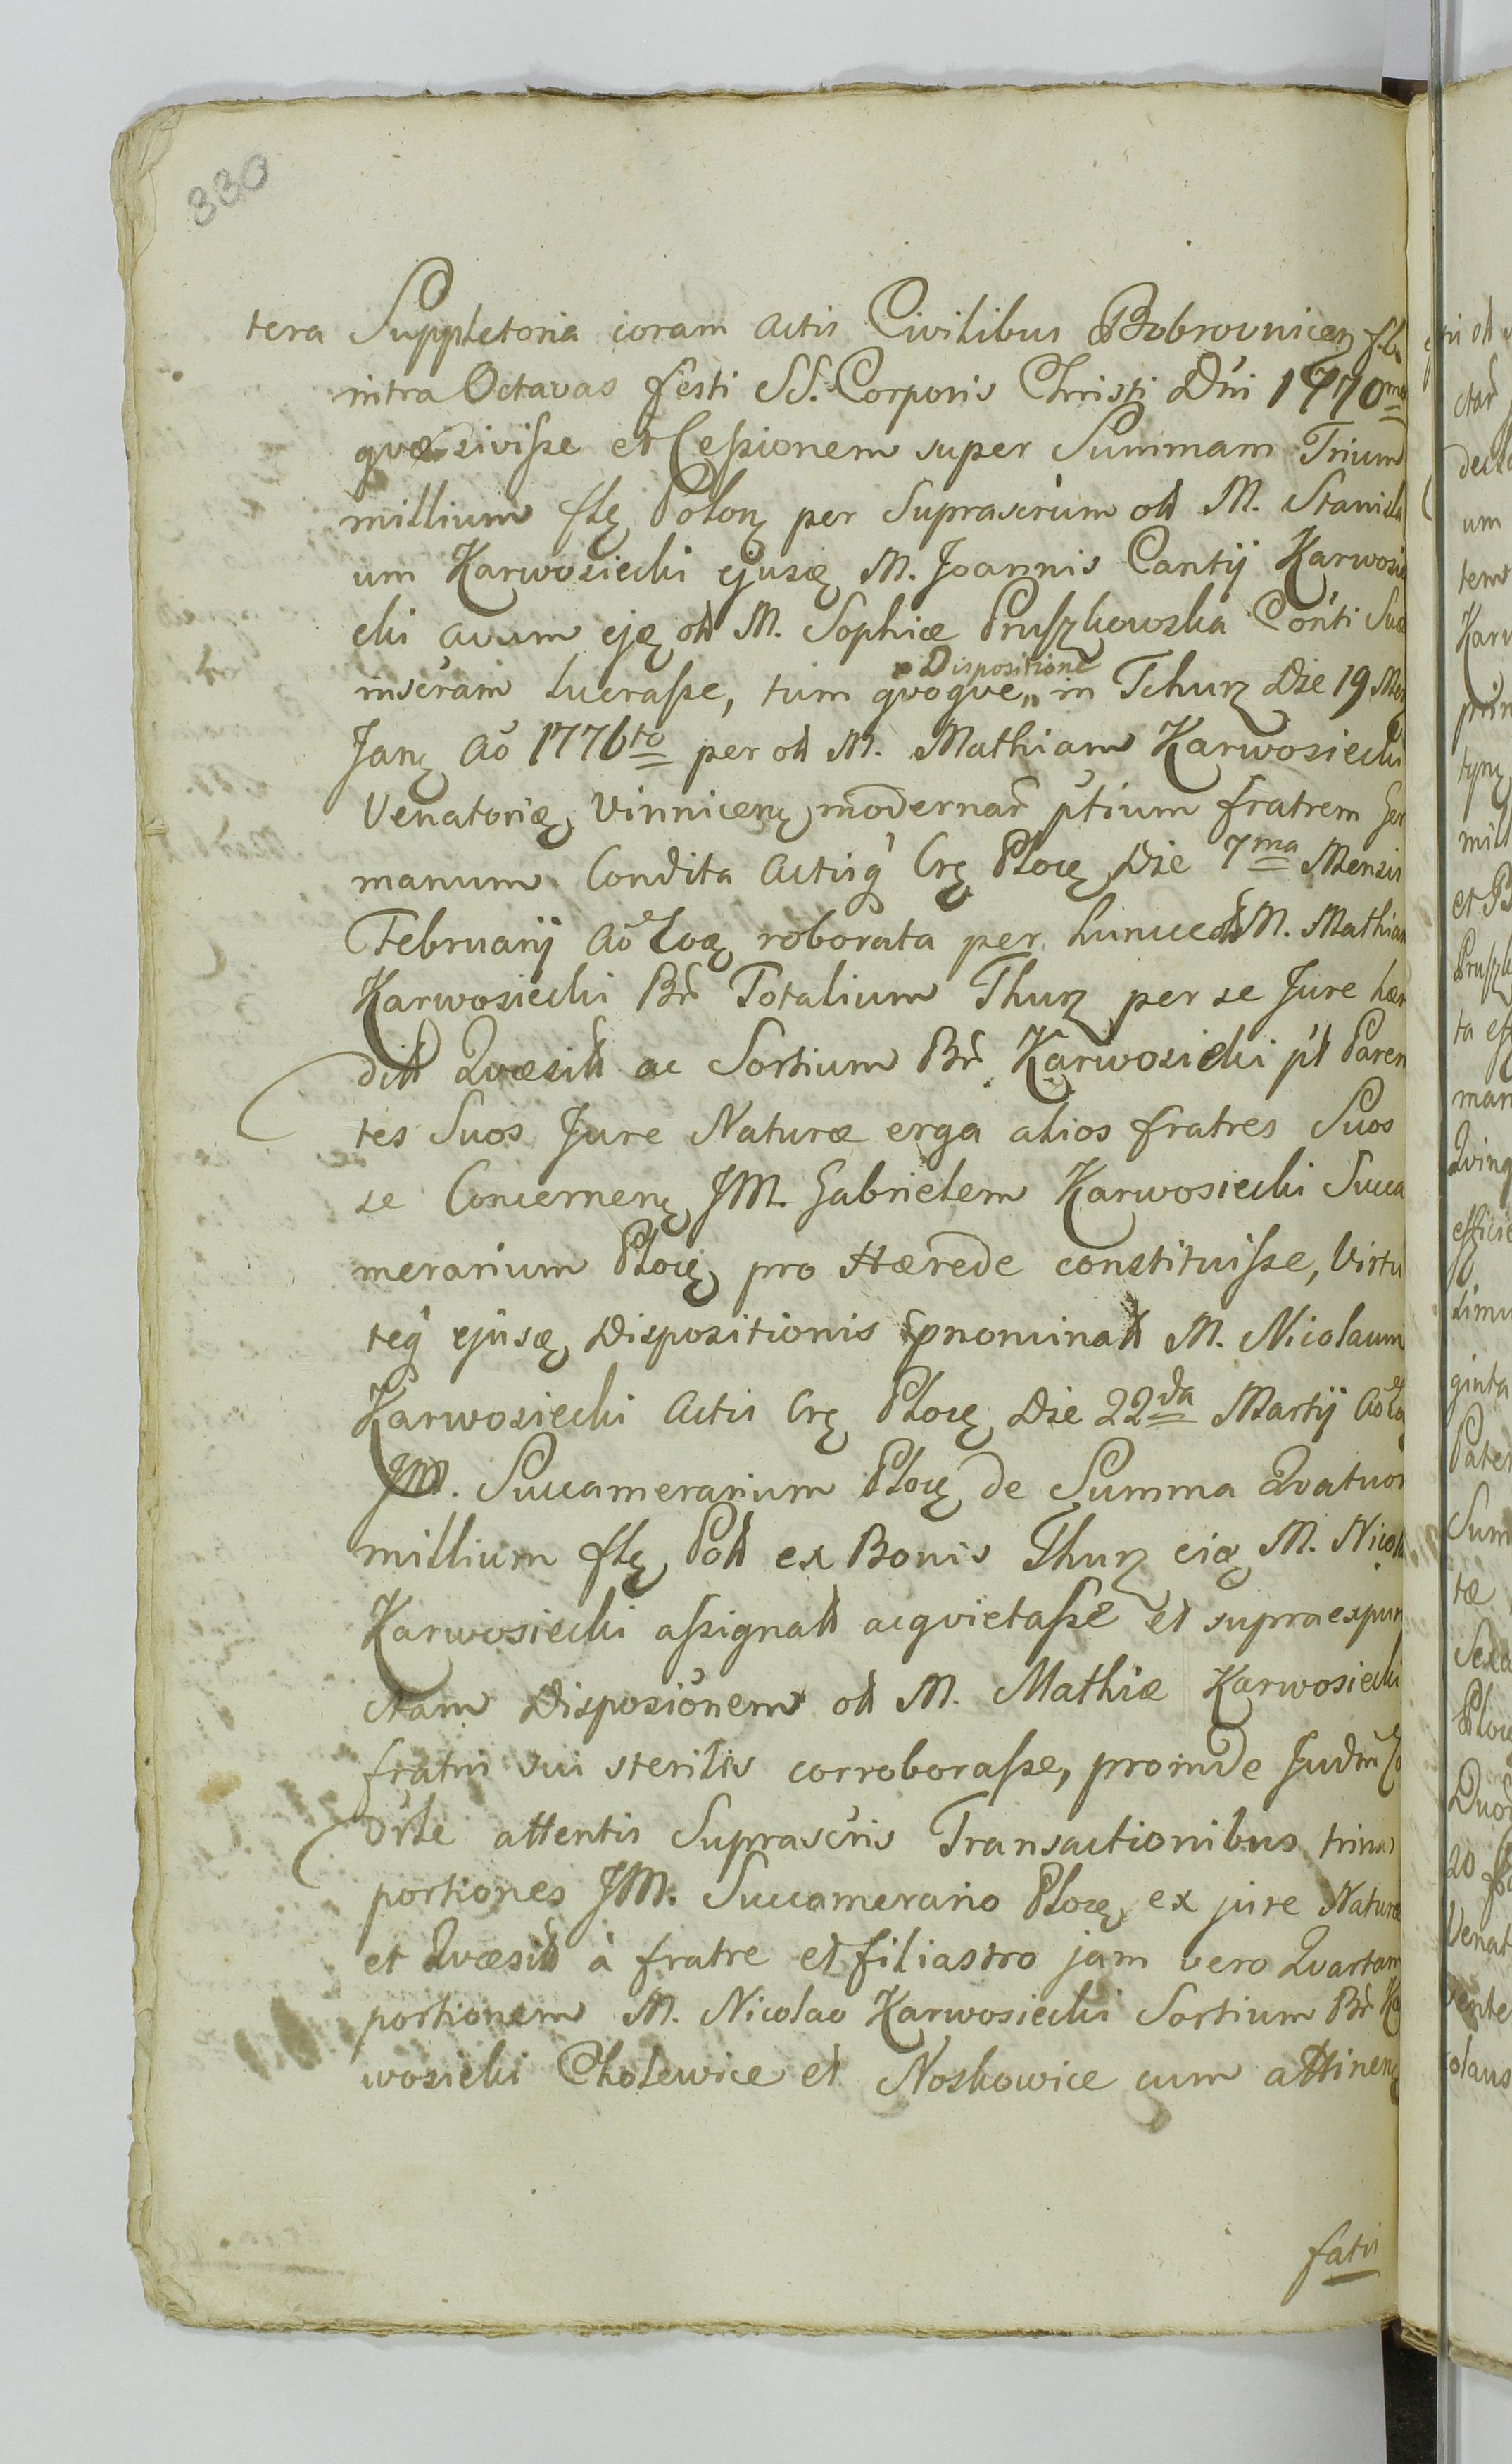 330
tera Suppletoria coram Actis Civilibus Bobrovnicen
intra Octavas festi SS. Corporis Christi Dni 1770mo
quæsivisse et Cessionem super Summam Trium
millium fle Polon per Suprascrum olt M. Stanisla
um Karwosiecki ejusq M. Joannis Cantij Karwosie
cki avum ejq olt M. Sophiæ Pruszkowska Cónti Suæ
inscram lucrasse, tum qvoqve „ Dispositione in Tchurz Die 19 Men
Janq Aõ 1776to per olt M. Mathiam Karwosiecki
Venatoriq Vinnicenq modernar ptium fratrem Ger
manum Condita Actisq Crq Plocq Die 7ma Mensis
Februarij Aõ roborata per huncce olt M. Mathiam
Karwosiecki Br Totalium Thurz per se Jure hær
ditt Qvæsitt ac Sortium Br Karwosieki pt Paren
tes Suos Jure Naturæ erga alios fratres Suos
se Concernenq JM. Gabrielem Karwosiecki Succa
merarium Plocq pro Hærede constituisse, Virtu
teq ejusq Dispositionis pnominatt M. Nicolaum
Karwosiecki Actis Crq Plocq Die 22da Martij Aõ
JM. Succamerarium Plocq de Summa Qvatuor
millium flq Poll ex Bonis Thurz eiq M. Nicola
Karwosiecki assignatt acqvietasse et supraexpun
ctam Disposiónem olt M. Mathiæ Karwosiecki
fratris sui sterilis corroborasse, proinde Judm
attentis Suprascris Transactionibus trinas
portiones JM. Succamerario Plocq ex jure Naturæ
et Qvæsitt à fratre et filiastro jam vero Qvartam
portionem M. Nicolao Karwosiecki Sortium Br Ka
wosieki Cholewice et Noskowice cum attinenq
fatis